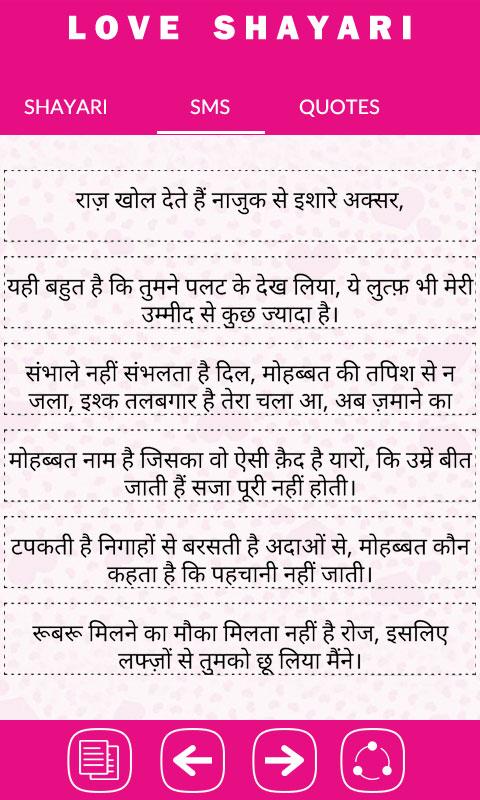 LOVE SHAYARI
SHAYARI SMS QUOTES
राज़ खोल देते हैं नाजुक से इशारे अक्सर,
यही बहुत है कि तुमने पलट के देख लिया, ये लुत्फ़ भी मेरी
उम्मीद से कुछ ज्यादा है।
संभाले नहीं संभलता है दिल, मोहब्बत की तपिश से न
जला, इश्क तलबगार है तेरा चला आ, अब ज़माने का
मोहब्बत नाम है जिसका वो ऐसी क़ैद है यारों, कि उम्रें बीत
जाती हैं सजा पूरी नहीं होती।
टपकती है निगाहों से बरसती है अदाओं से, मोहब्बत कौन
कहता है कि पहचानी नहीं जाती।
रूबरू मिलने का मौका मिलता नहीं है रोज, इसलिए
लफ्ज़ों से तुमको छू लिया मैंने।